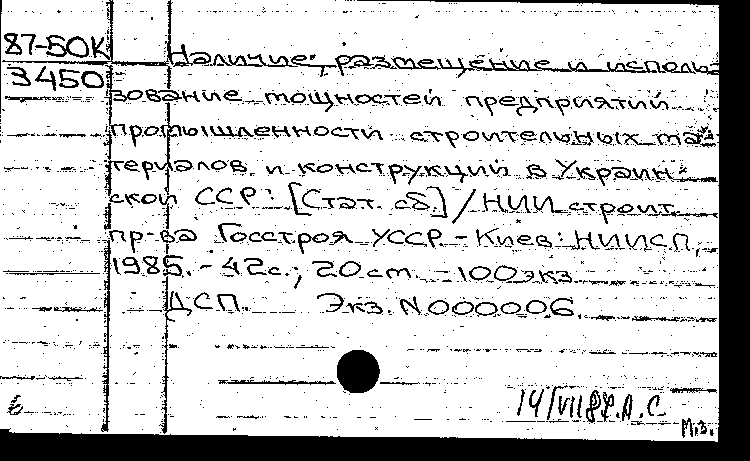 87-БОК
3450
Наличие, размещение и исполь-
зование мощностей предприятий
промышленности строительных ма-
териалов и конструкций в Украин-
ской ССР: [Стат. сб.] / НИИ строит.
пр-ва Госстроя УССР. - Киев: НИИСП,
1985. - 42 с.; 20 cm. - 100 экз.
ДСП. Экз. N 000006.
14/VII 88. А. С.
М.З.